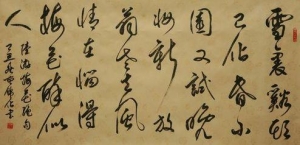 雪裏谿頭
已佔春小
園又試晚
妝新放
翁老去風
情在惱得
梅花醉似
人
陸游梅花絕句